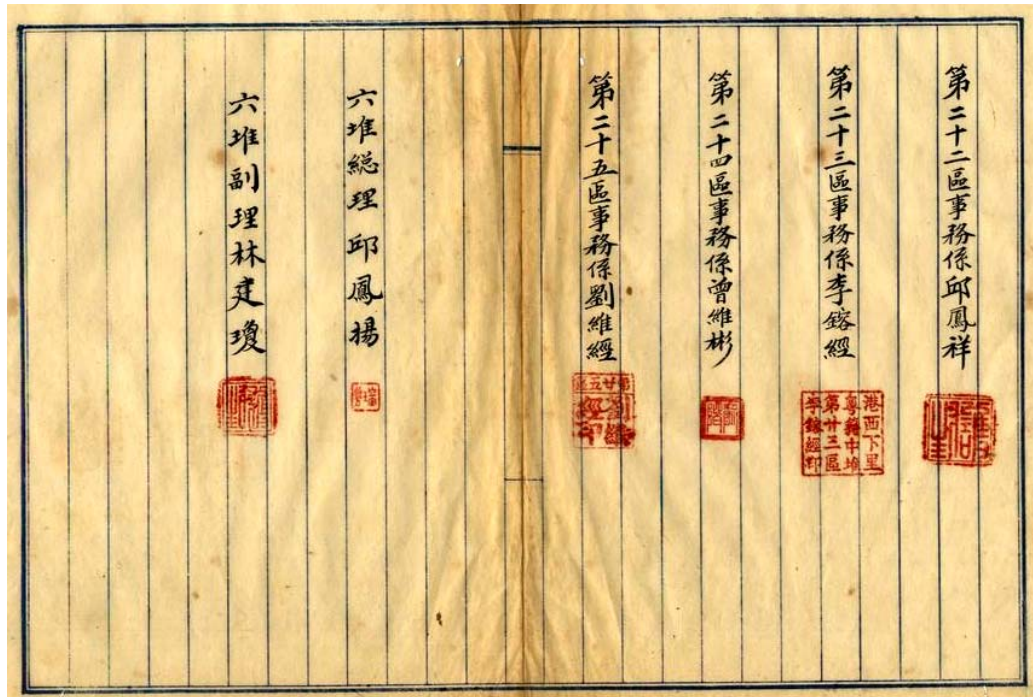 第二十二區事務係邱鳳祥
第二十三區事務係李鎔經
港西下里
粵籍中堆
第廿三區
李鎔經印
第二十四區事務係曾維彬
第二十五區事務係劉維經
六堆総理邱鳳揚
六堆副理林建瓊